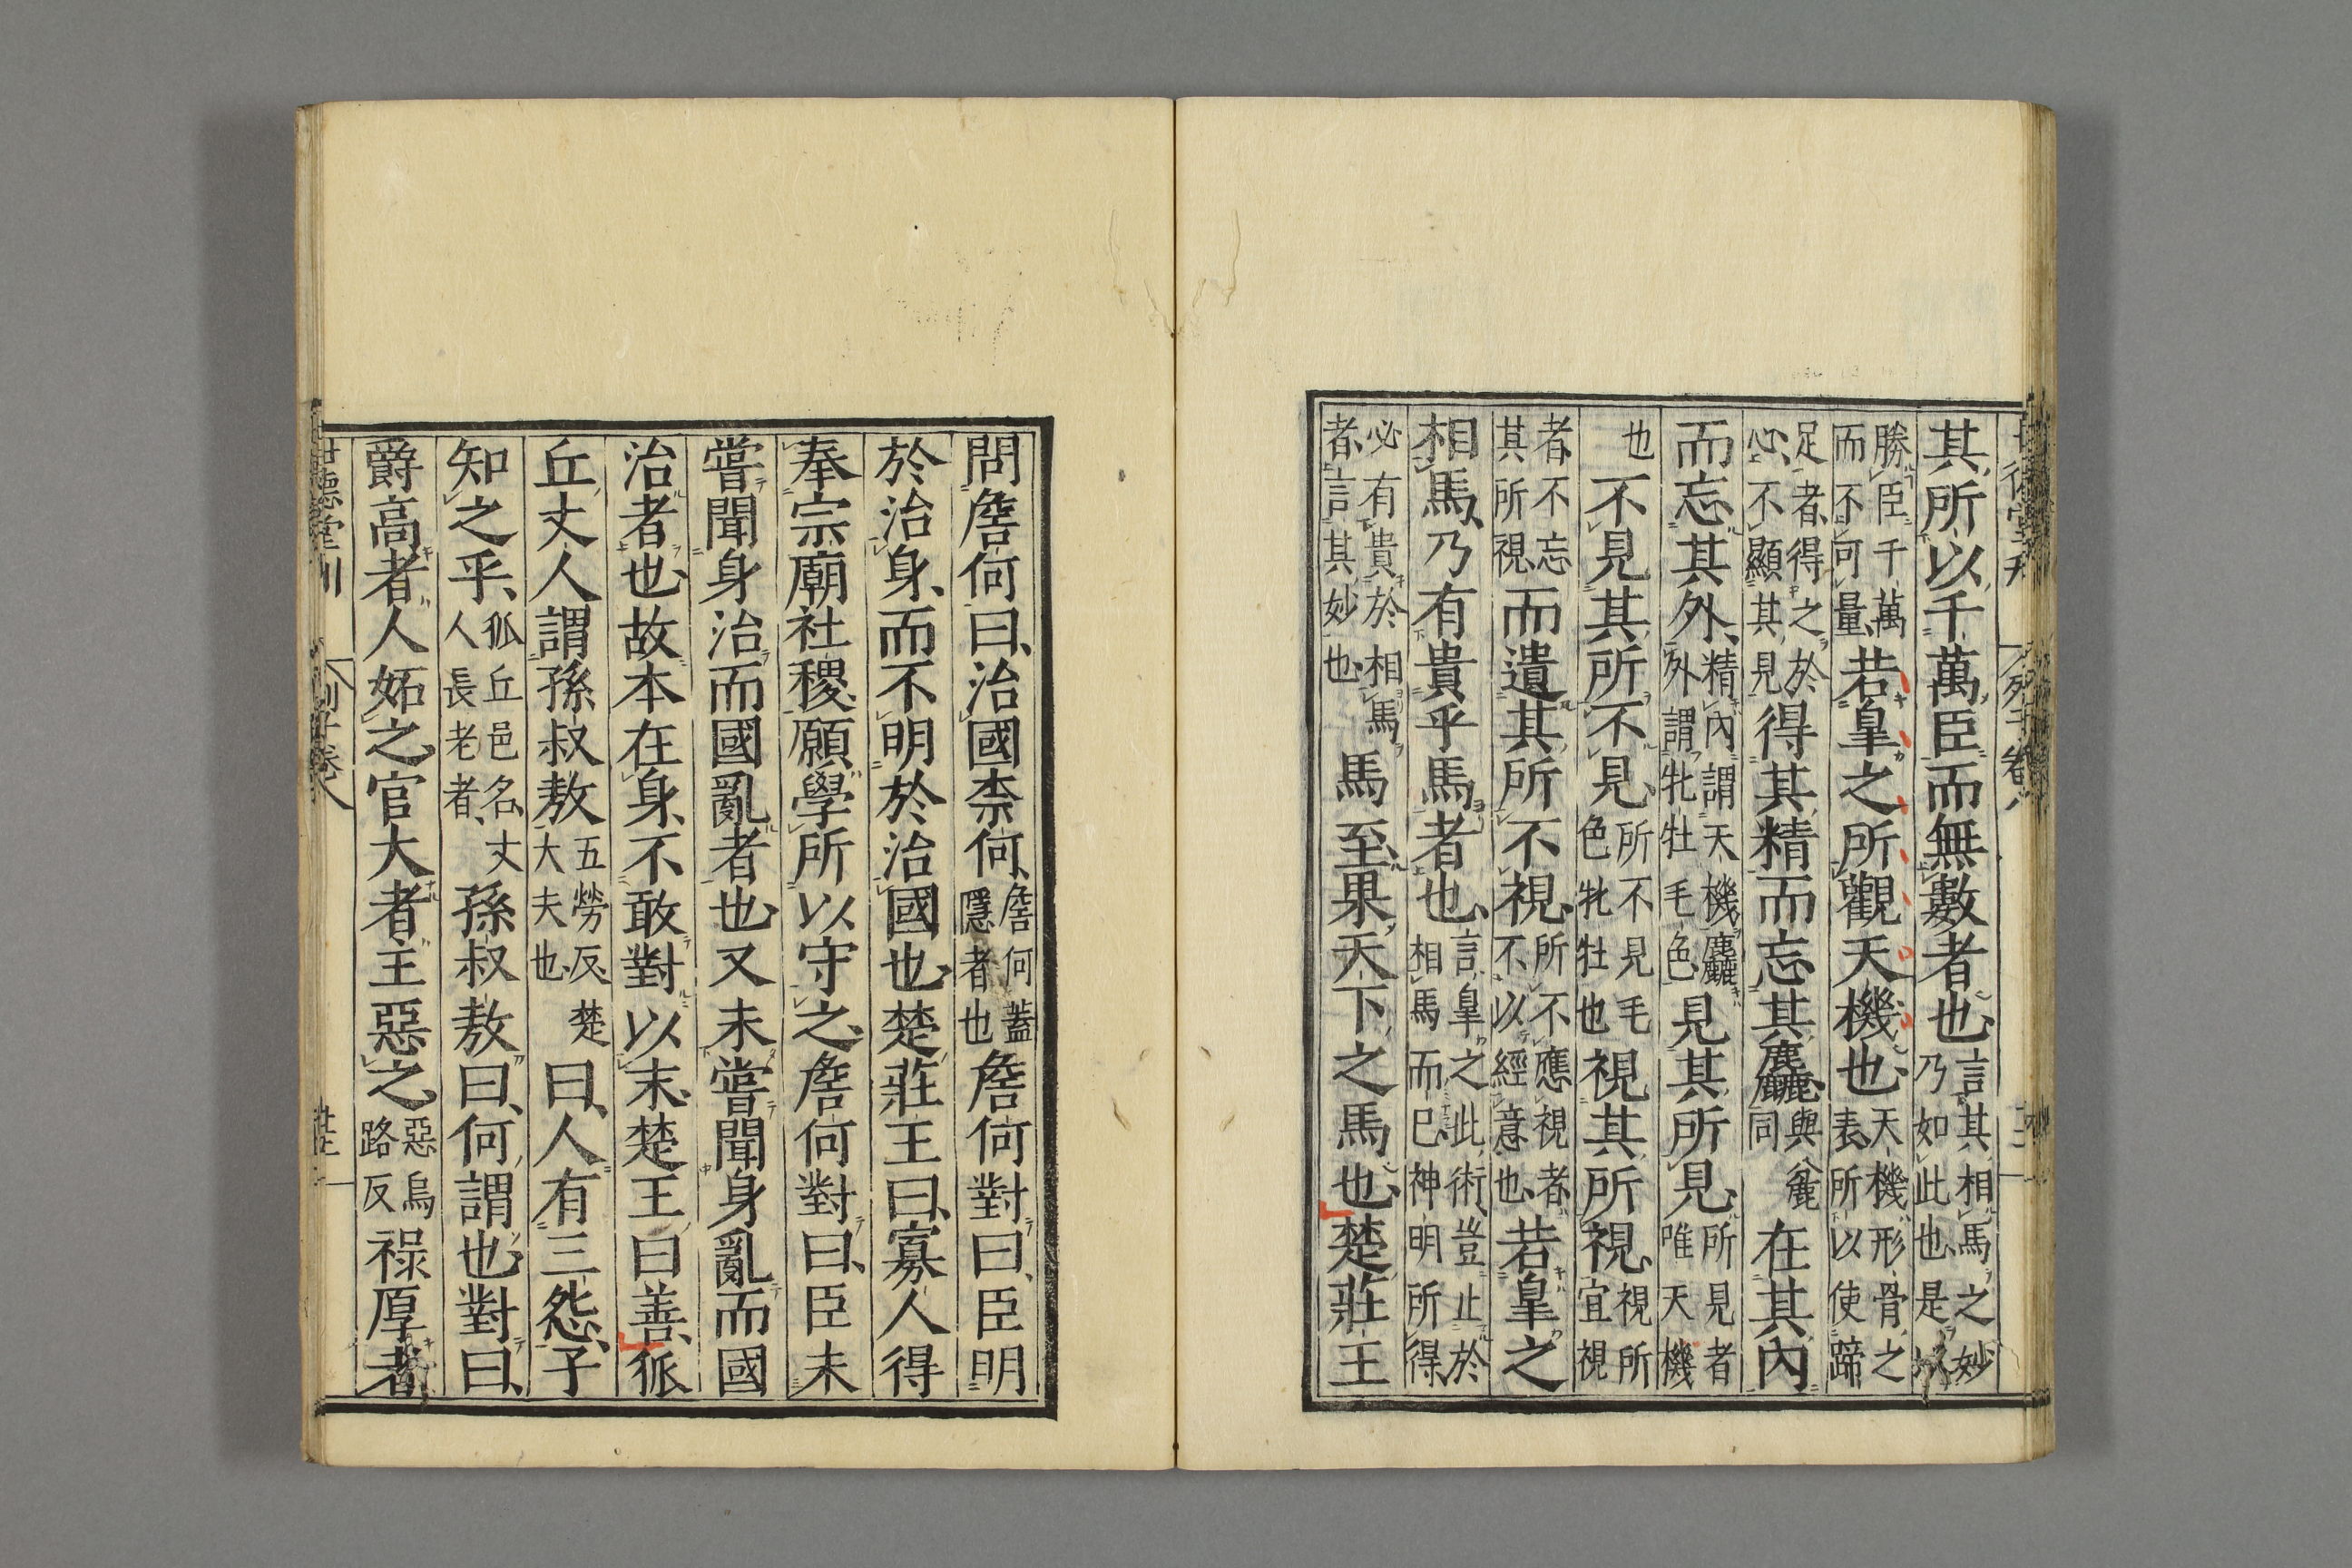 其所以千萬臣而無數者也言其相馬之妙乃如此也是以
勝臣千萬而不可量若皇之所觀天機也天機形骨之表所以使蹄
足者得之於心不顯其見得其精而忘其麤與麄同在其內
而忘其外精內謂天機麤外謂牝牡毛色見其所見所見者唯天機
也不見其所不見所不見毛色牝牡也視其所視視所宜視
者不忘其所視而遺其所不視所不應視者不以經意也若皇之
相馬乃有貴乎馬者也言皇之此術豈止於相馬而已神明所得
必有貴於相馬者言其妙也馬至果天下之馬也楚莊王
問詹何曰治國柰何詹何蓋隱者也詹何對曰臣明
於治身而不明於治國也楚莊王曰寡人得
奉宗廟社稷願學所以守之詹何對曰臣未
嘗聞身治而國亂者也又未嘗聞身亂而國
治者也故本在身不敢對以末楚王曰善狐
丘丈人謂孫叔敖五勞反楚大夫也曰人有三怨子
知之乎狐丘邑名丈人長老者孫叔敖曰何謂也對曰
爵高者人妬之官大者主惡之惡烏路反祿厚者
世德堂刊
列子卷八